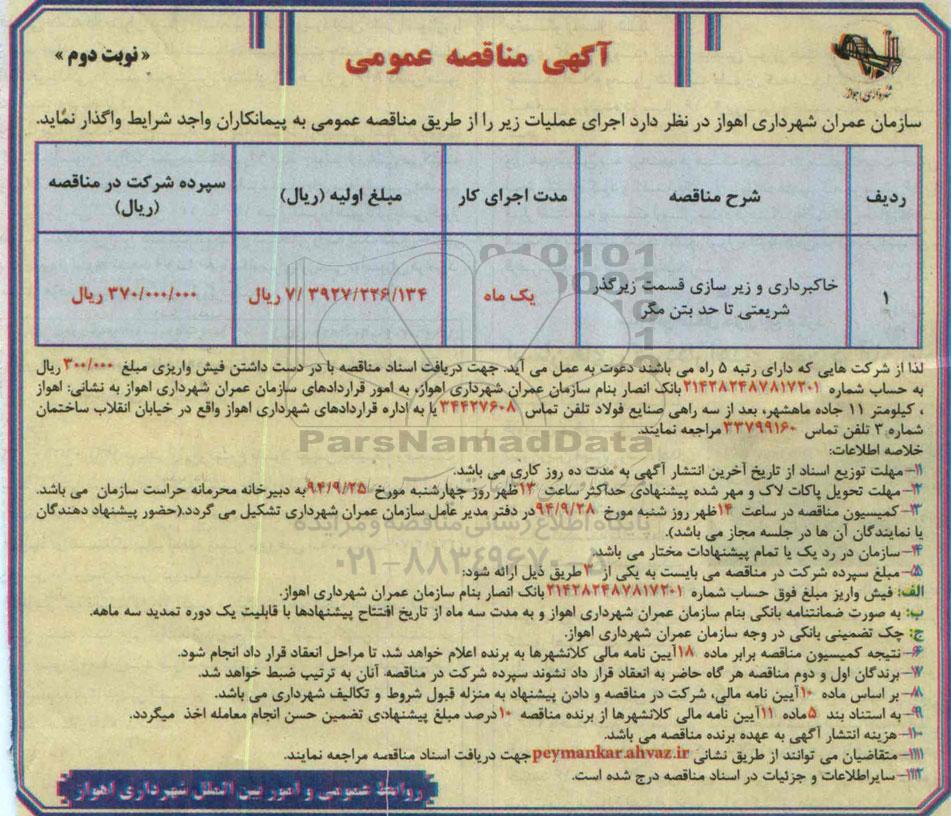 شهرداری اهواز
آگهی مناقصه عمومی
« نوبت دوم »
سازمان عمران شهرداری اهواز در نظر دارد اجرای عملیات زیر را از طریق مناقصه عمومی به پیمانکاران واجد شرایط واگذار نماید.
ردیف
شرح مناقصه
مدت اجرای کار
مبلغ اولیه (ریال)
سپرده شرکت در مناقصه
(ریال)
۱
خاکبرداری و زیر سازی قسمت زیرگذر
شریعتی تا حد بتن مگر
یک ماه
۷/ ۳۹۲۷/۲۲۶/۱۳۴ ریال
۳۷۰/۰۰۰/۰۰۰ ریال
لذا از شرکت هایی که دارای رتبه ۵ راه می باشند دعوت به عمل می آید. جهت دریافت اسناد مناقصه با در دست داشتن فیش واریزی مبلغ ۳۰۰/۰۰۰ ریال
به حساب شماره ۲۱۴۲۸۲۴۸۷۸۱۷۲۰۱ بانک انصار بنام سازمان عمران شهرداری اهواز، به امور قراردادهای سازمان عمران شهرداری اهواز به نشانی: اهواز
، کیلومتر ۱۱ جاده ماهشهر، بعد از سه راهی صنایع فولاد تلفن تماس ۳۴۴۲۷۶۰۸ یا به اداره قراردادهای شهرداری اهواز واقع در خیابان انقلاب ساختمان
شماره ۳ تلفن تماس ۳۳۷۹۹۱۶۰ مراجعه نمایند.
خلاصه اطلاعات:
۱- مهلت توزیع اسناد از تاریخ آخرین انتشار آگهی به مدت ده روز کاری می باشد.
۲- مهلت تحویل پاکات لاک و مهر شده پیشنهادی حداکثر ساعت ۱۳ ظهر روز چهارشنبه مورخ ۹۴/۹/۲۵ به دبیرخانه محرمانه حراست سازمان می باشد.
۳- کمیسیون مناقصه در ساعت ۱۴ ظهر روز شنبه مورخ ۹۴/۹/۲۸ در دفتر مدیر عامل سازمان عمران شهرداری تشکیل می گردد.(حضور پیشنهاد دهندگان
یا نمایندگان آن ها در جلسه مجاز می باشد).
۴- سازمان در رد یک یا تمام پیشنهادات مختار می باشد.
۵- مبلغ سپرده شرکت در مناقصه می بایست به یکی از ۳ طریق ذیل ارائه شود:
الف: فیش واریز مبلغ فوق حساب شماره ۲۱۴۲۸۲۴۸۷۸۱۷۲۰۱ بانک انصار بنام سازمان عمران شهرداری اهواز.
ب: به صورت ضمانتنامه بانکی بنام سازمان عمران شهرداری اهواز و به مدت سه ماه از تاریخ افتتاح پیشنهادها با قابلیت یک دوره تمدید سه ماهه.
ج: چک تضمینی بانکی در وجه سازمان عمران شهرداری اهواز.
۶- نتیجه کمیسیون مناقصه برابر ماده ۱۸ آیین نامه مالی کلانشهرها به برنده اعلام خواهد شد، تا مراحل انعقاد قرار داد انجام شود.
۷- برندگان اول و دوم مناقصه هر گاه حاضر به انعقاد قرار داد نشوند سپرده شرکت در مناقصه آنان به ترتیب ضبط خواهد شد.
۸- بر اساس ماده ۱۰ آیین نامه مالی، شرکت در مناقصه و دادن پیشنهاد به منزله قبول شروط و تکالیف شهرداری می باشد.
۹- به استناد بند ۵ ماده ۱۱ آیین نامه مالی کلانشهرها از برنده مناقصه ۱۰ درصد مبلغ پیشنهادی تضمین حسن انجام معامله اخذ میگردد.
۱۰- هزینه انتشار آگهی به عهده برنده مناقصه می باشد.
۱۱- متقاضیان می توانند از طریق نشانی peymankar.ahvaz.ir جهت دریافت اسناد مناقصه مراجعه نمایند.
۱۲- سایراطلاعات و جزئیات در اسناد مناقصه درج شده است.
روابط عمومی و امور بین الملل شهرداری اهواز
ParsNamadData
پایگاه اطلاع رسانی مناقصه و مزایده
۰۲۱-۸۸۳۴۹۶۷۰-۵